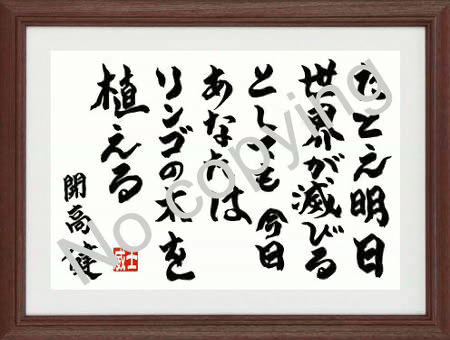 たとえ明日
世界が滅びる
としても 今日
あなたは
リンゴの木を
植える
開高健
No copying